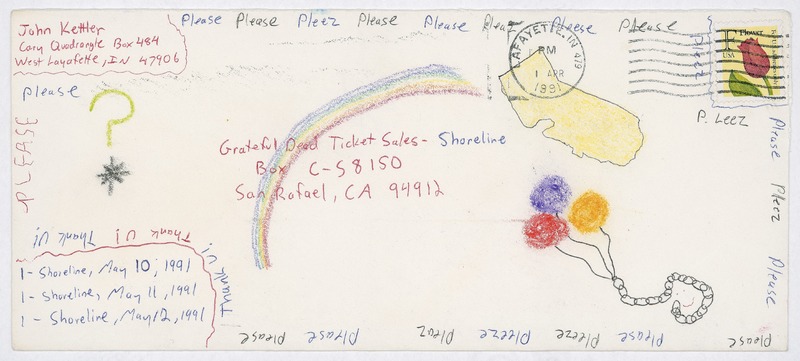 John Kettler
Cary Quadrangle Box 484
West Layafette, IN 47906
Please Please Pleez Please Please Pleaz Pleese Please
Pleez
LAFAYETTE, IN 479
PM
1 APR
1991
F Flower
USA
please
PLEASE
P. Leez
Grateful Dead Ticket Sales- Shoreline
Box C-S8150
San Rafael, CA 94912
Please
Pleez
Please
Thank U! Thank U! Thank U!
Thank U!
1- Shoreline, May 10, 1991
1- Shoreline, May 11, 1991
1- Shoreline, May 12, 1991
Please Please Pleaz Pleeze Pleeze Please Please